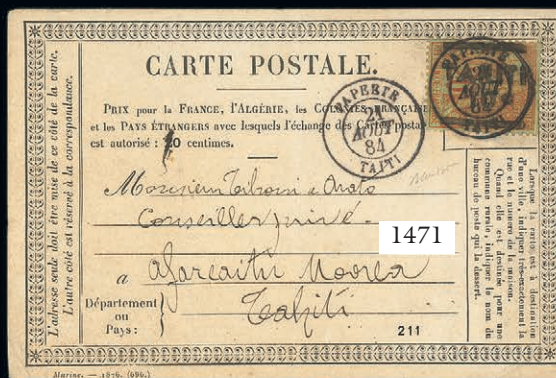 CARTE POSTALE.
PRIX pour la FRANCE, l'ALGÉRIE, les COLONIES FRANÇAISE
et les PAYS ÉTRANGERS avec lesquels l'échange des Cartes posta
est autorisé : 10 centimes.
PAPEETE
25
AOUT
84
TAITI
PAPEETE
AOUT
84
TAITI
Monsieur
Conseiller privé.
1471
à Afareaitu Moorea
Tahiti
Département
ou
Pays :
211
Marine. — 1876. (686.)
L'adresse seule doit être mise de ce côté de la carte.
L'autre côté est réservé à la correspondance.
Lorsque la carte est à destination
d'une ville, indiquer très-exactement la
rue et le numéro de la maison.
Quand elle est destinée pour une
commune rurale, indiquer le nom du
bureau de poste qui la dessert.